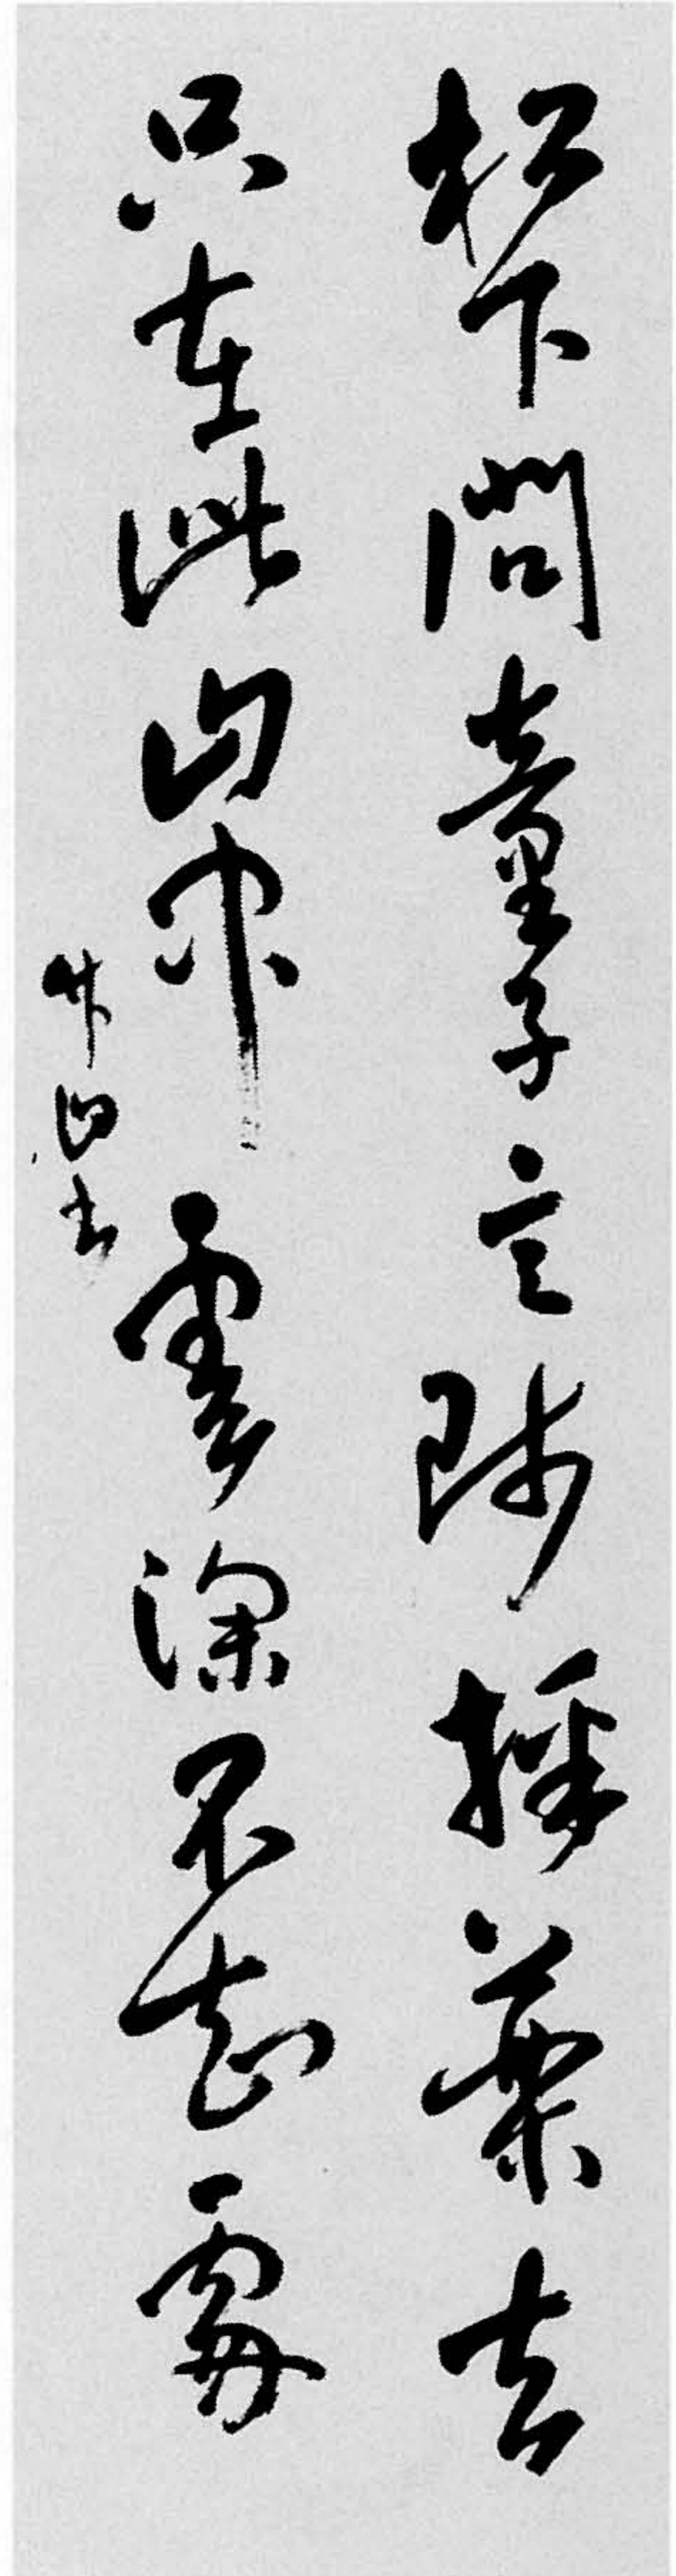 松下問童子言師採藥去
只在此山中雲深不知處
竹山書